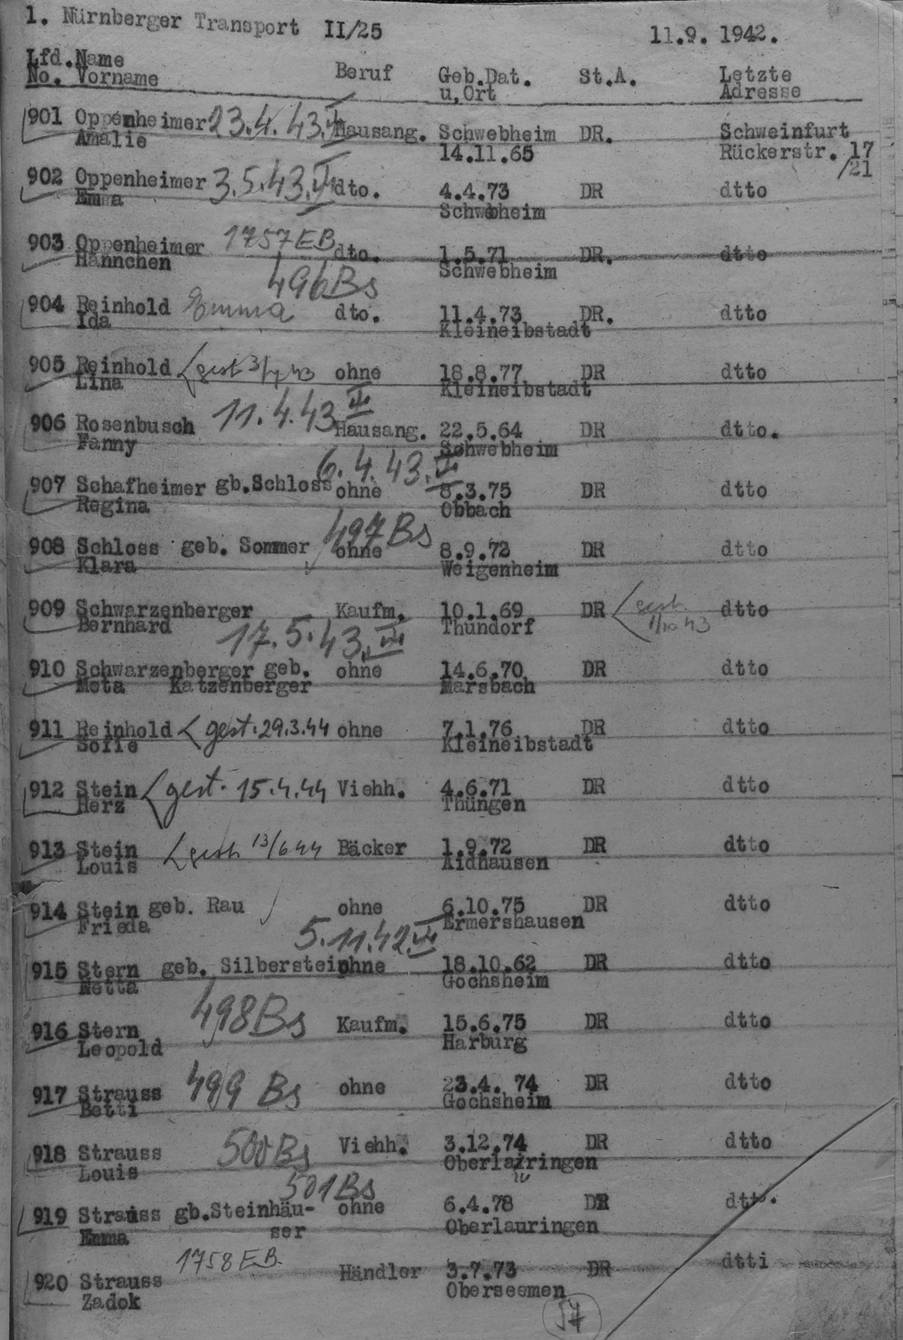 1. Nürnberger Transport II/25 11.9. 1942.
Lfd. Name Beruf Geb.Dat. St.A. Letzte
No. Vorname u.Ort Adresse
901 Oppenheimer 23.4.43. Hausang. Schwebheim DR. Schweinfurt
Amalie 14.11.65 Rückerstr. 17
/21
902 Oppenheimer 3.5.43. dto. 4.4.73 DR dtto
Emma Schwebheim
903 Oppenheimer 1757 EB dto. 1.5.71 DR. dtto
Hännchen Schwebheim
496 Bs
904 Reinhold Emma dto. 11.4.73 DR. dtto
Ida Kleineibstadt
905 Reinhold gest 3/4 43 ohne 18.8.77 DR dtto
Lina Kleineibstadt
906 Rosenbusch 11.4.43 Hausang. 22.5.64 DR dtto.
Fanny Schwebheim
6.4.43.
907 Schafheimer gb.Schloss ohne 8.3.75 DR dtto
Regina Obbach
497 Bs
908 Schloss geb. Sommer ohne 8.9.72 DR dtto
Klara Weigenheim
909 Schwarzenberger Kaufm. 10.1.69 DR gest. dtto
Bernhard Thundorf 1/10 43
17.5.43.
910 Schwarzenberger geb. ohne 14.6.70 DR dtto
Meta Katzenberger Marsbach
911 Reinhold gest. 29.3.44 ohne 7.1.76 DR dtto
Sofie Kleineibstadt
912 Stein gest. 15.4.44 Viehh. 4.6.71 DR dtto
Herz Thüngen
913 Stein gest 13/6 44 Bäcker 1.9.72 DR dtto
Louis Aidhausen
914 Stein geb. Rau ohne 6.10.75 DR dtto
Frieda Ermershausen
5.11.42
915 Stern geb. Silberstein ohne 18.10.62 DR dtto
Netta Gochsheim
916 Stern 498 Bs Kaufm. 15.6.75 DR dtto
Leopold Harburg
917 Strauss 499 Bs ohne 23.4. 74 DR dtto
Betti Gochsheim
918 Strauss 500 Bs Viehh. 3.12.74 DR dtto
Louis Oberlauringen
501 Bs
919 Strauss gb.Steinhäu- ohne 6.4.78 DR dtt.
Emma ser Oberlauringen
920 Strauss 1758 EB. Händler 3.7.73 DR dtti
Zadok Oberseemen
57